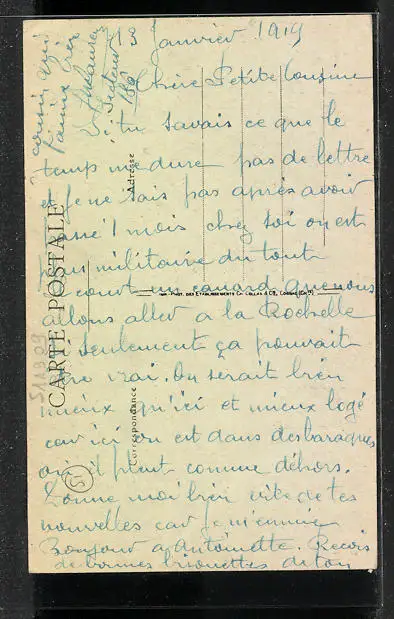 13 Janvier 1919
Chère Petite Cousine
Si tu savais ce que le
temp me dure pas de lettre
et je ne sais pas après avoir
passé 1 mois chez soi on est
plus militaire du tout
Il court un canard que nous
allons aller a la Rochelle
si seulement ça pouvait
être vrai. On serait bien
mieux qu'ici et mieux logé
car ici on est dans des baraques
où il pleut comme dehors.
Donne moi bien vite de tes
nouvelles car je m'ennuie
Bonjour a Antoinette. Recois
de bonnes bisouettes de ton
cousin qui
t'aime bien
CARTE POSTALE
Adresse
Correspondance
IMP. PHOT. DES ÉTABLISSEMENTS CH. COLLAS & Cie, COGNAC
511909
51